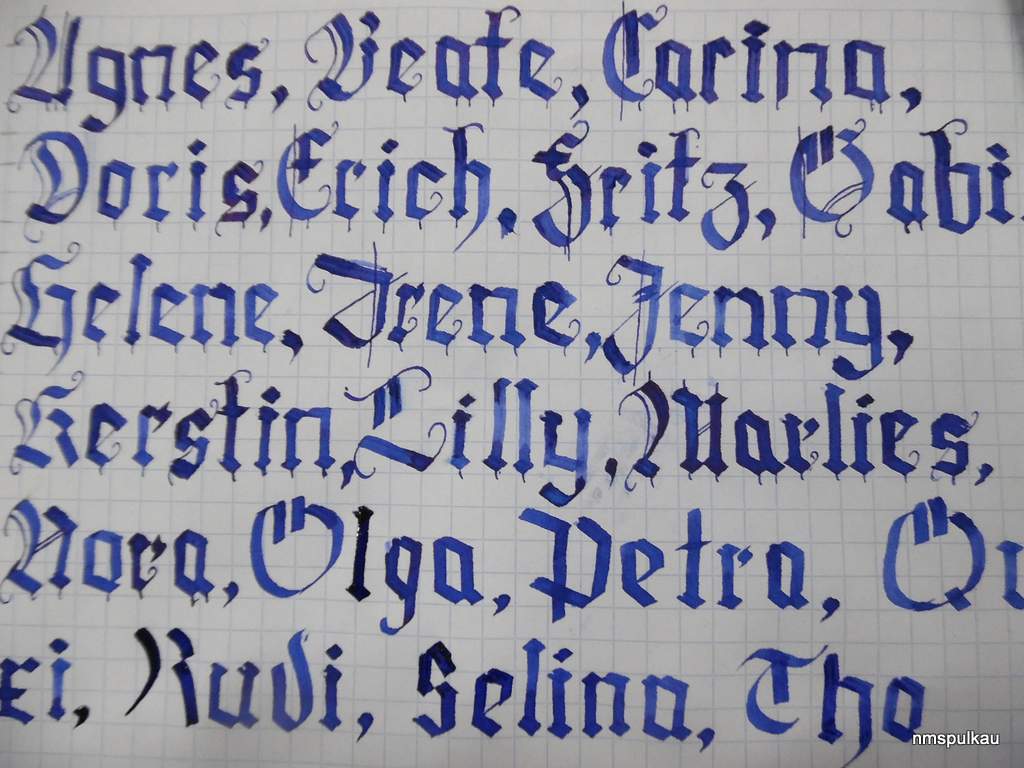 Agnes, Beate, Carina,
Doris, Erich, Fritz, Gabi
Helene, Irene, Jenny,
Kerstin, Lilly, Marlies,
Nora, Olga, Petra,
xi, Rudi, Selina, Tho
nmspulkau